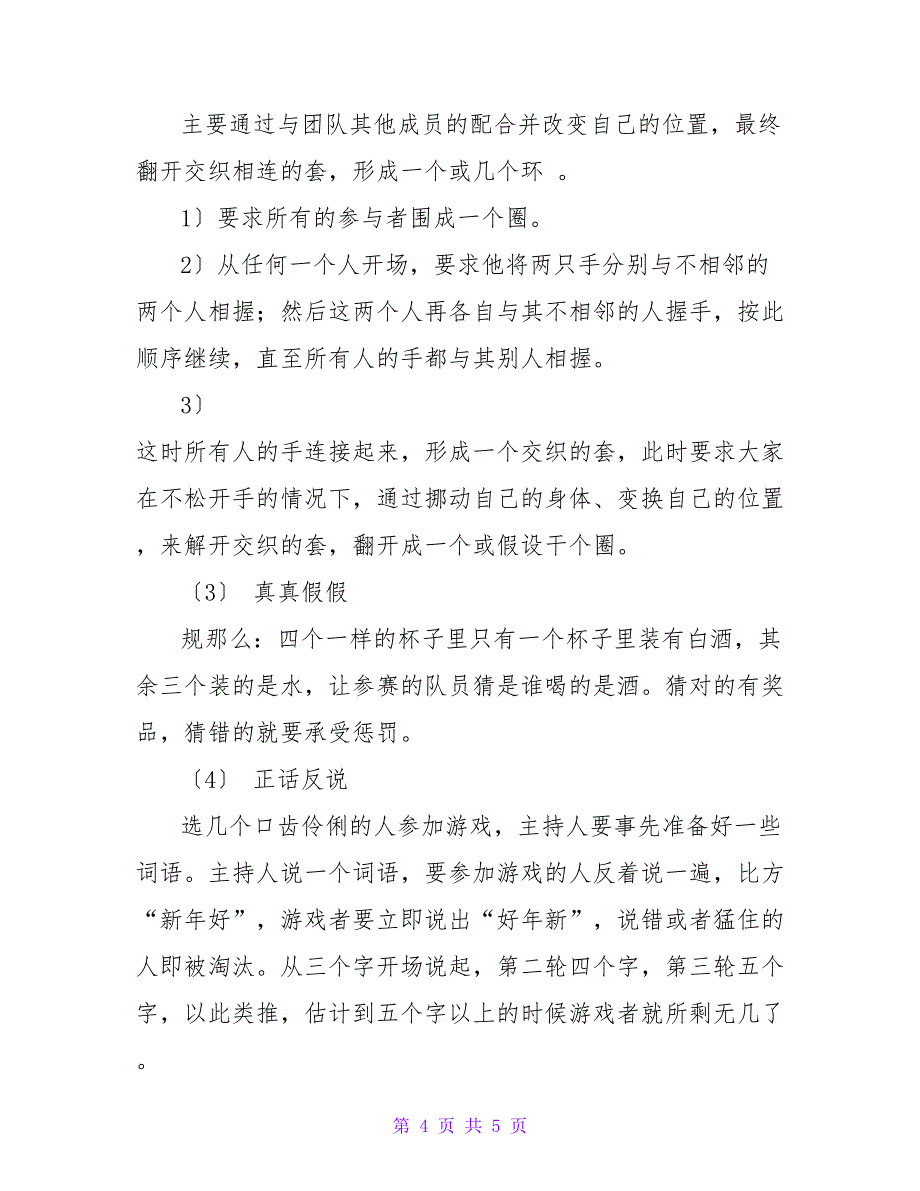 主要通过与团队其他成员的配合并改变自己的位置，最终
翻开交织相连的套，形成一个或几个环 。
1〕要求所有的参与者围成一个圈。
2〕从任何一个人开场，要求他将两只手分别与不相邻的
两个人相握；然后这两个人再各自与其不相邻的人握手，按此
顺序继续，直至所有人的手都与其别人相握。
3〕
这时所有人的手连接起来，形成一个交织的套，此时要求大家
在不松开手的情况下，通过挪动自己的身体、变换自己的位置
，来解开交织的套，翻开成一个或假设干个圈。
〔3〕 真真假假
规那么：四个一样的杯子里只有一个杯子里装有白酒，其
余三个装的是水，让参赛的队员猜是谁喝的是酒。猜对的有奖
品，猜错的就要承受惩罚。
〔4〕 正话反说
选几个口齿伶俐的人参加游戏，主持人要事先准备好一些
词语。主持人说一个词语，要参加游戏的人反着说一遍，比方
“新年好”，游戏者要立即说出“好年新”，说错或者猛住的
人即被淘汰。从三个字开场说起，第二轮四个字，第三轮五个
字，以此类推，估计到五个字以上的时候游戏者就所剩无几了
。
第 4 页 共 5 页